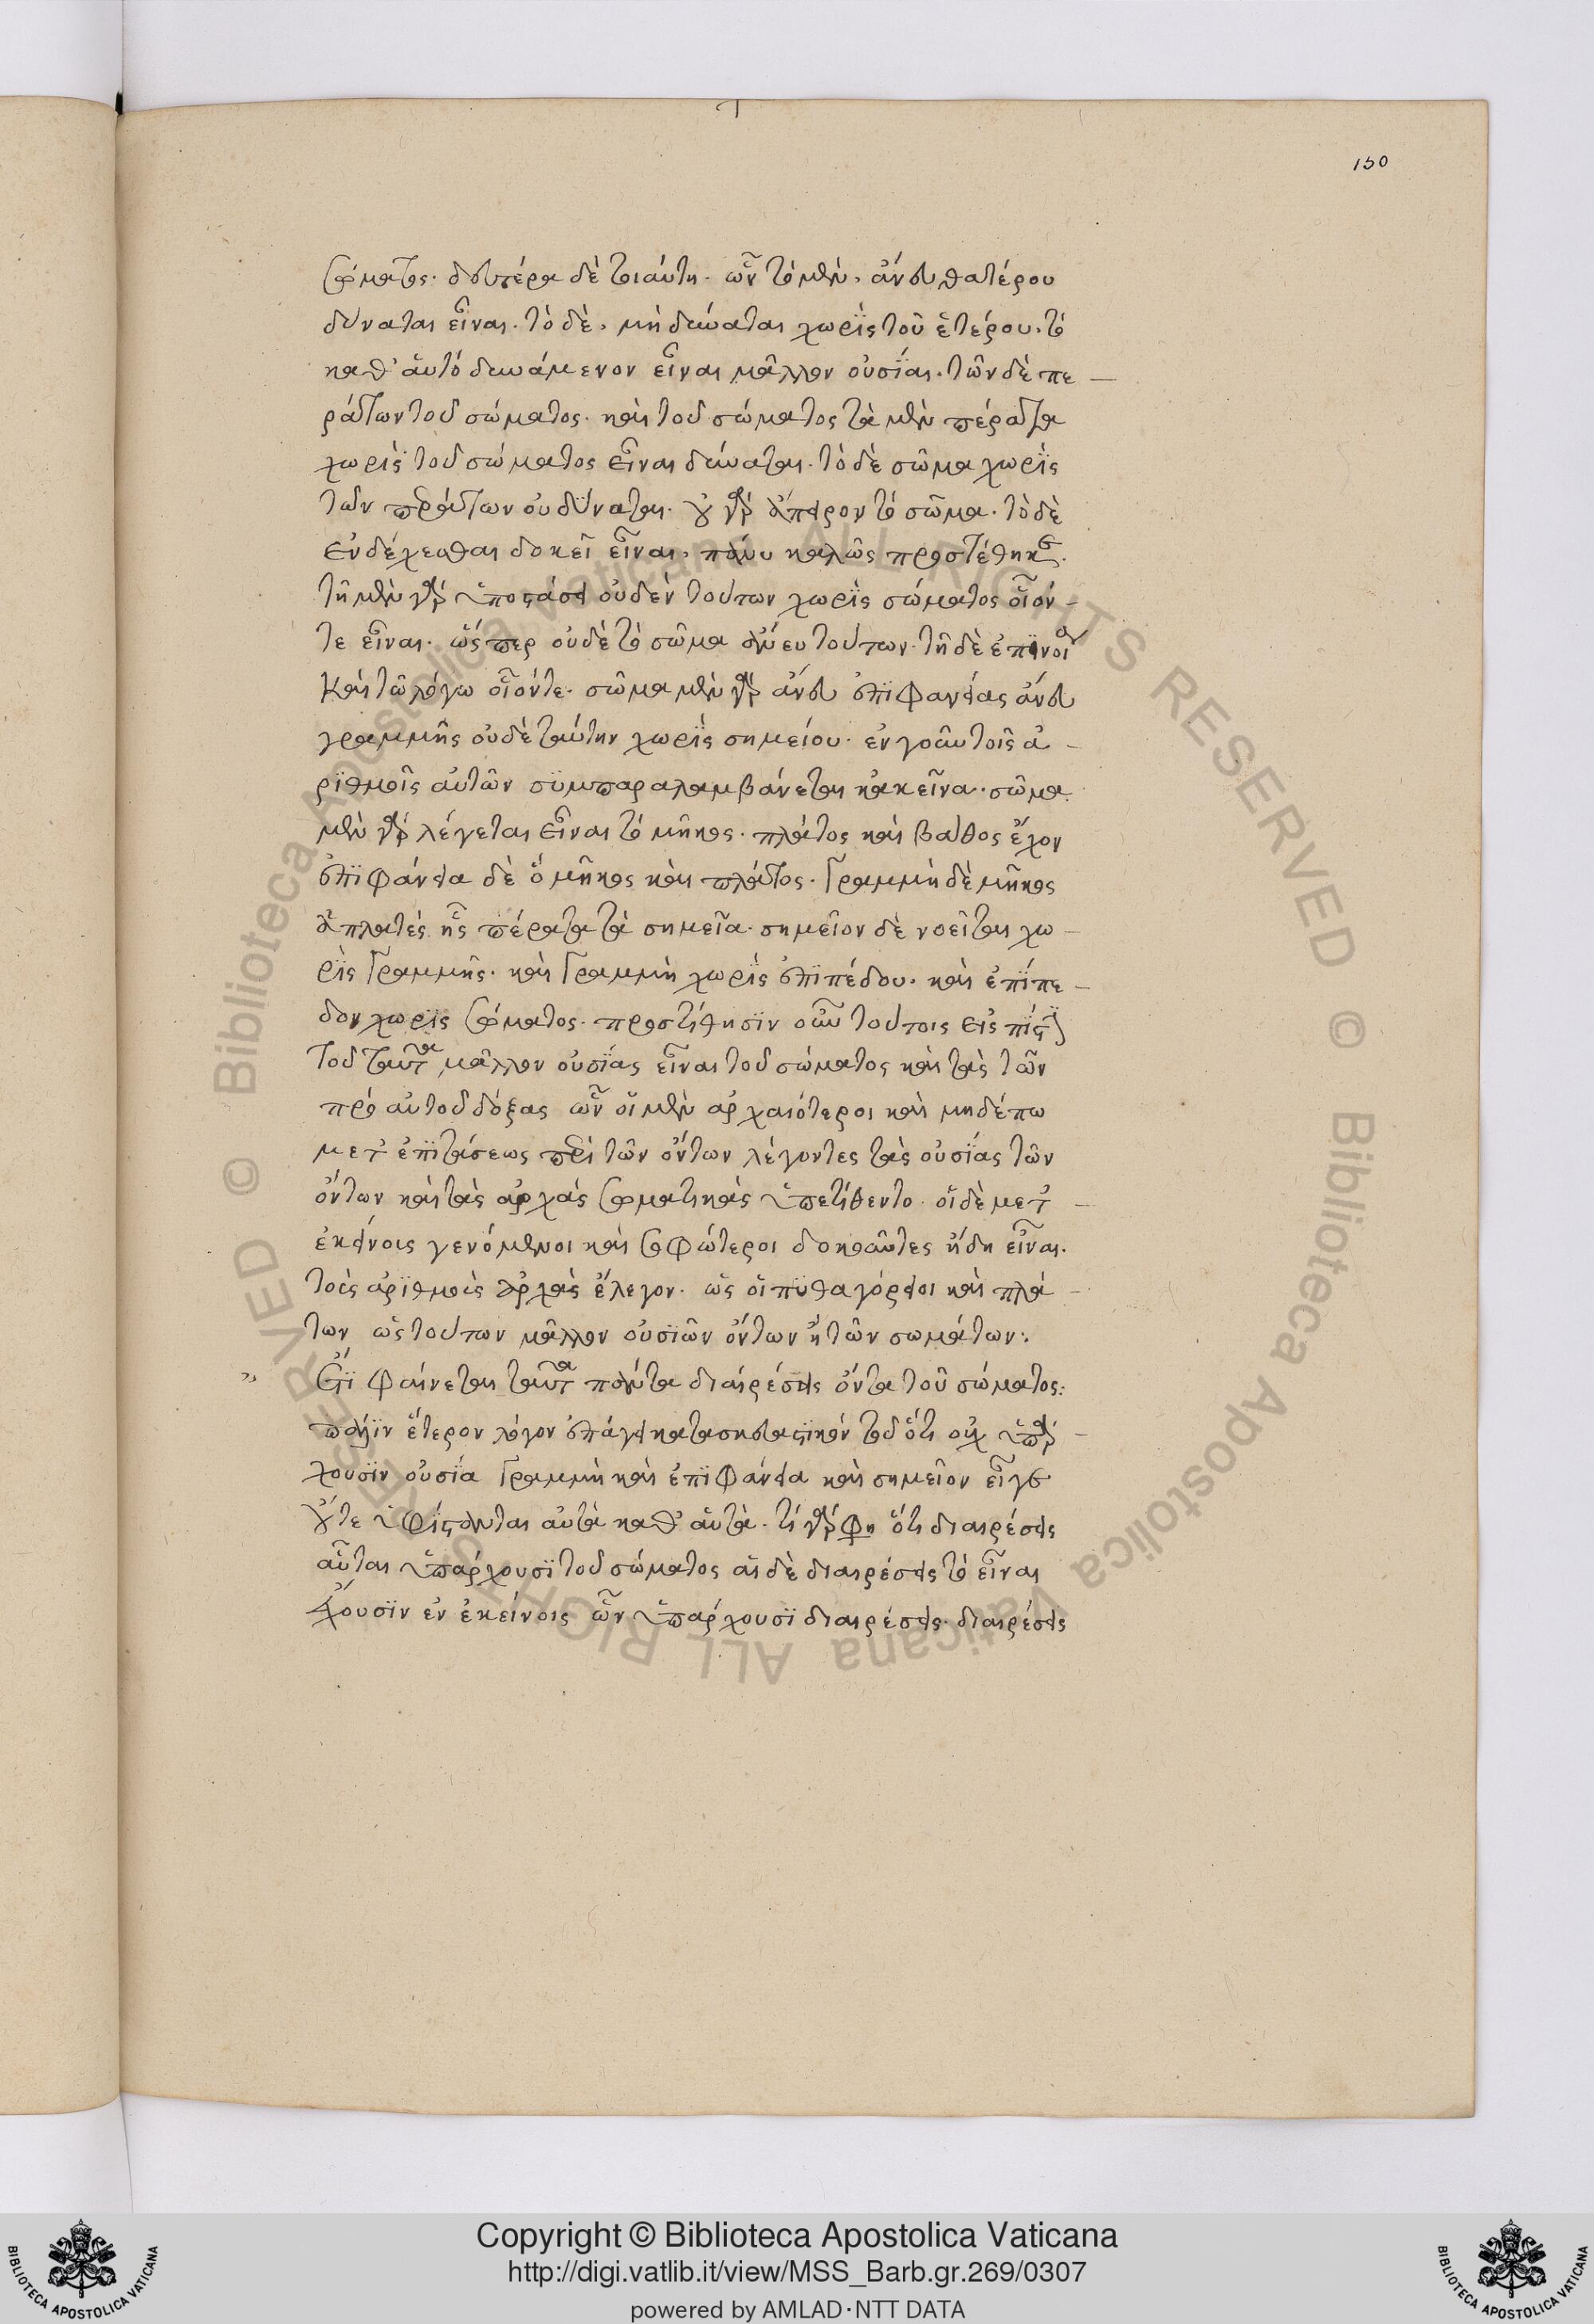 150
σώματος· δευτέρα δὲ τοιαύτη· ὧν τὸ μὲν, ἄνευ θατέρου
δύναται εἶναι· τὸ δὲ, μὴ δύναται χωρὶς τοῦ ἑτέρου· τὸ
καθ' αὑτὸ δυνάμενον εἶναι μᾶλλον οὐσίαι· τῶν δὲ πε
ράτων τοῦ σώματος· καὶ τοῦ σώματος τὰ μὲν πέρατα
χωρὶς τοῦ σώματος εἶναι δύναται· τὸ δὲ σῶμα χωρὶς
τῶν περάτων οὐ δύναται· οὐ γὰρ ἄπειρον τὸ σῶμα· τὸ δὲ
ἐνδέχεσθαι δοκεῖ εἶναι, πάνυ καλῶς προστέθηκεν·
τῇ μὲν γὰρ ὑποστάσει οὐδὲν τούτων χωρὶς σώματος οἷόν
τε εἶναι· ὥσπερ οὐδὲ τὸ σῶμα ἄνευ τούτων· τῇ δὲ ἐπινοίᾳ
καὶ τῷ λόγῳ οἷόν τε· σῶμα μὲν γὰρ ἄνευ ἐπιφανείας ἄνευ
γραμμῆς οὐδὲ ταύτην χωρὶς σημείου· ἐν γοῦν τοῖς ἀ
ριθμοῖς αὐτῶν συμπαραλαμβάνεται κἀκεῖνα· σῶμα
μὲν γὰρ λέγεται εἶναι τὸ μῆκος· πλάτος καὶ βάθος ἔχον
ἐπιφάνεια δὲ ὃ μῆκος καὶ πλάτος· Γραμμὴ δὲ μῆκος
ἀπλατές ἧς πέρατα τὰ σημεῖα· σημεῖον δὲ νοεῖται χω
ρὶς Γραμμῆς· καὶ Γραμμὴ χωρὶς ἐπιπέδου· καὶ ἐπίπε
δον χωρὶς σώματος· προστίθησιν οὖν τούτοις εἰς πίστιν
τοῦ ταῦτα μᾶλλον οὐσίας εἶναι τοῦ σώματος καὶ τὰς τῶν
πρὸ αὐτοῦ δόξας ὧν οἱ μὲν ἀρχαιότεροι καὶ μηδέπω
μετ' ἐπιστάσεως περὶ τῶν ὄντων λέγοντες τὰς οὐσίας τῶν
ὄντων καὶ τὰς ἀρχὰς σωματικὰς ὑπετίθεντο· οἱ δὲ μετ'
ἐκείνοις γενόμενοι καὶ σοφώτεροι δοκοῦντες ἤδη εἶναι·
τοὺς ἀριθμοὺς ἀρχὰς ἔλεγον· ὡς οἱ πυθαγόρειοι καὶ πλά
των ὡς τούτων μᾶλλον οὐσιῶν ὄντων ἢ τῶν σωμάτων:
Ἔτι φαίνεται ταῦτα πάντα διαιρέσεις ὄντα τοῦ σώματος:
πάλιν ἕτερον λόγον ἐπάγει κατασκευαστικὸν τοῦ ὅτι οὐχ ὑπάρ
χουσιν οὐσία Γραμμὴ καὶ ἐπιφάνεια καὶ σημεῖον εἴγε
οὔτε ὑφίστανται αὐτὰ καθ' αὑτὰ· τί γάρ φη ὅτι διαιρέσεις
αὗται ὑπάρχουσι τοῦ σώματος αἱ δὲ διαιρέσεις τὸ εἶναι
ἔχουσιν ἐν ἐκείνοις ὧν ὑπάρχουσι διαιρέσεις· διαιρέσεις
Copyright © Biblioteca Apostolica Vaticana
http://digi.vatlib.it/view/MSS_Barb.gr.269/0307
powered by AMLAD·NTT DATA